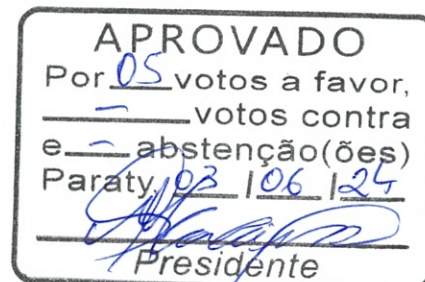 APROVADO
Por 05 votos a favor,
— votos contra
e — abstenção(ões)
Paraty, 03 / 06 / 24
Presidente